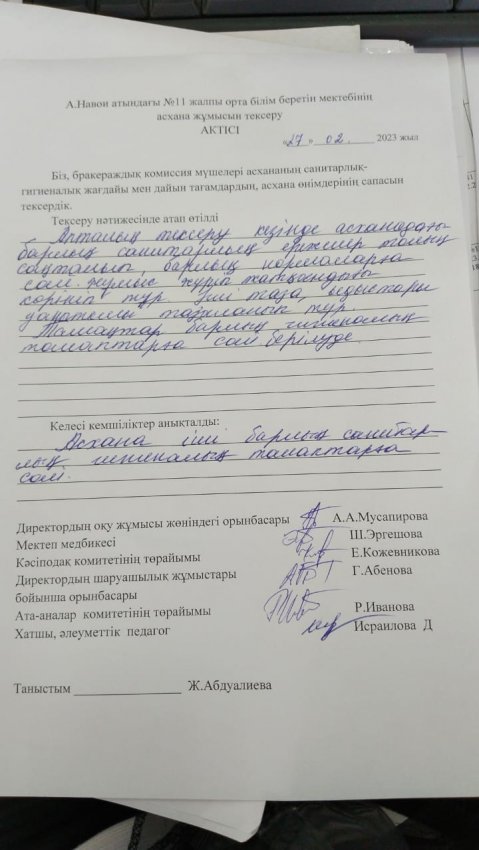 А.Навои атындағы №11 жалпы орта білім беретін мектебінің
асхана жұмысын тексеру
АКТІСІ
«27» 02. 2023 жыл
Біз, бракераждық комиссия мүшелері асхананың санитарлық-
гигиеналық жағдайы мен дайын тағамдардың, асхана өнімдерінің сапасын
тексердік.
Тексеру нәтижесінде атап өтілді
Апталық тексеру кезінде асханадағы
барлық санитарлық ережелер толық
сақталып, барлық нормаларға
сай жұмыс жүріп жатқандығы
көрініп тұр. Іші таза, ыдыстары
уақытылы тазаланып тұр.
Тамақтар барлық гигиеналық
талаптарға сай берілуде.
Келесі кемшіліктер анықталды:
Асхана іші барлық санитар-
лық гигиеналық талаптарға
сай.
Директордың оқу жұмысы жөніндегі орынбасары А.А.Мусапирова
Мектеп медбикесі Ш.Эргешова
Кәсіподак комитетінің төрайымы Е.Кожевникова
Директордың шаруашылық жұмыстары Г.Абенова
бойынша орынбасары
Ата-аналар комитетінің төрайымы Р.Иванова
Хатшы, әлеуметтік педагог Исраилова Д
Таныстым Ж.Абдуалиева